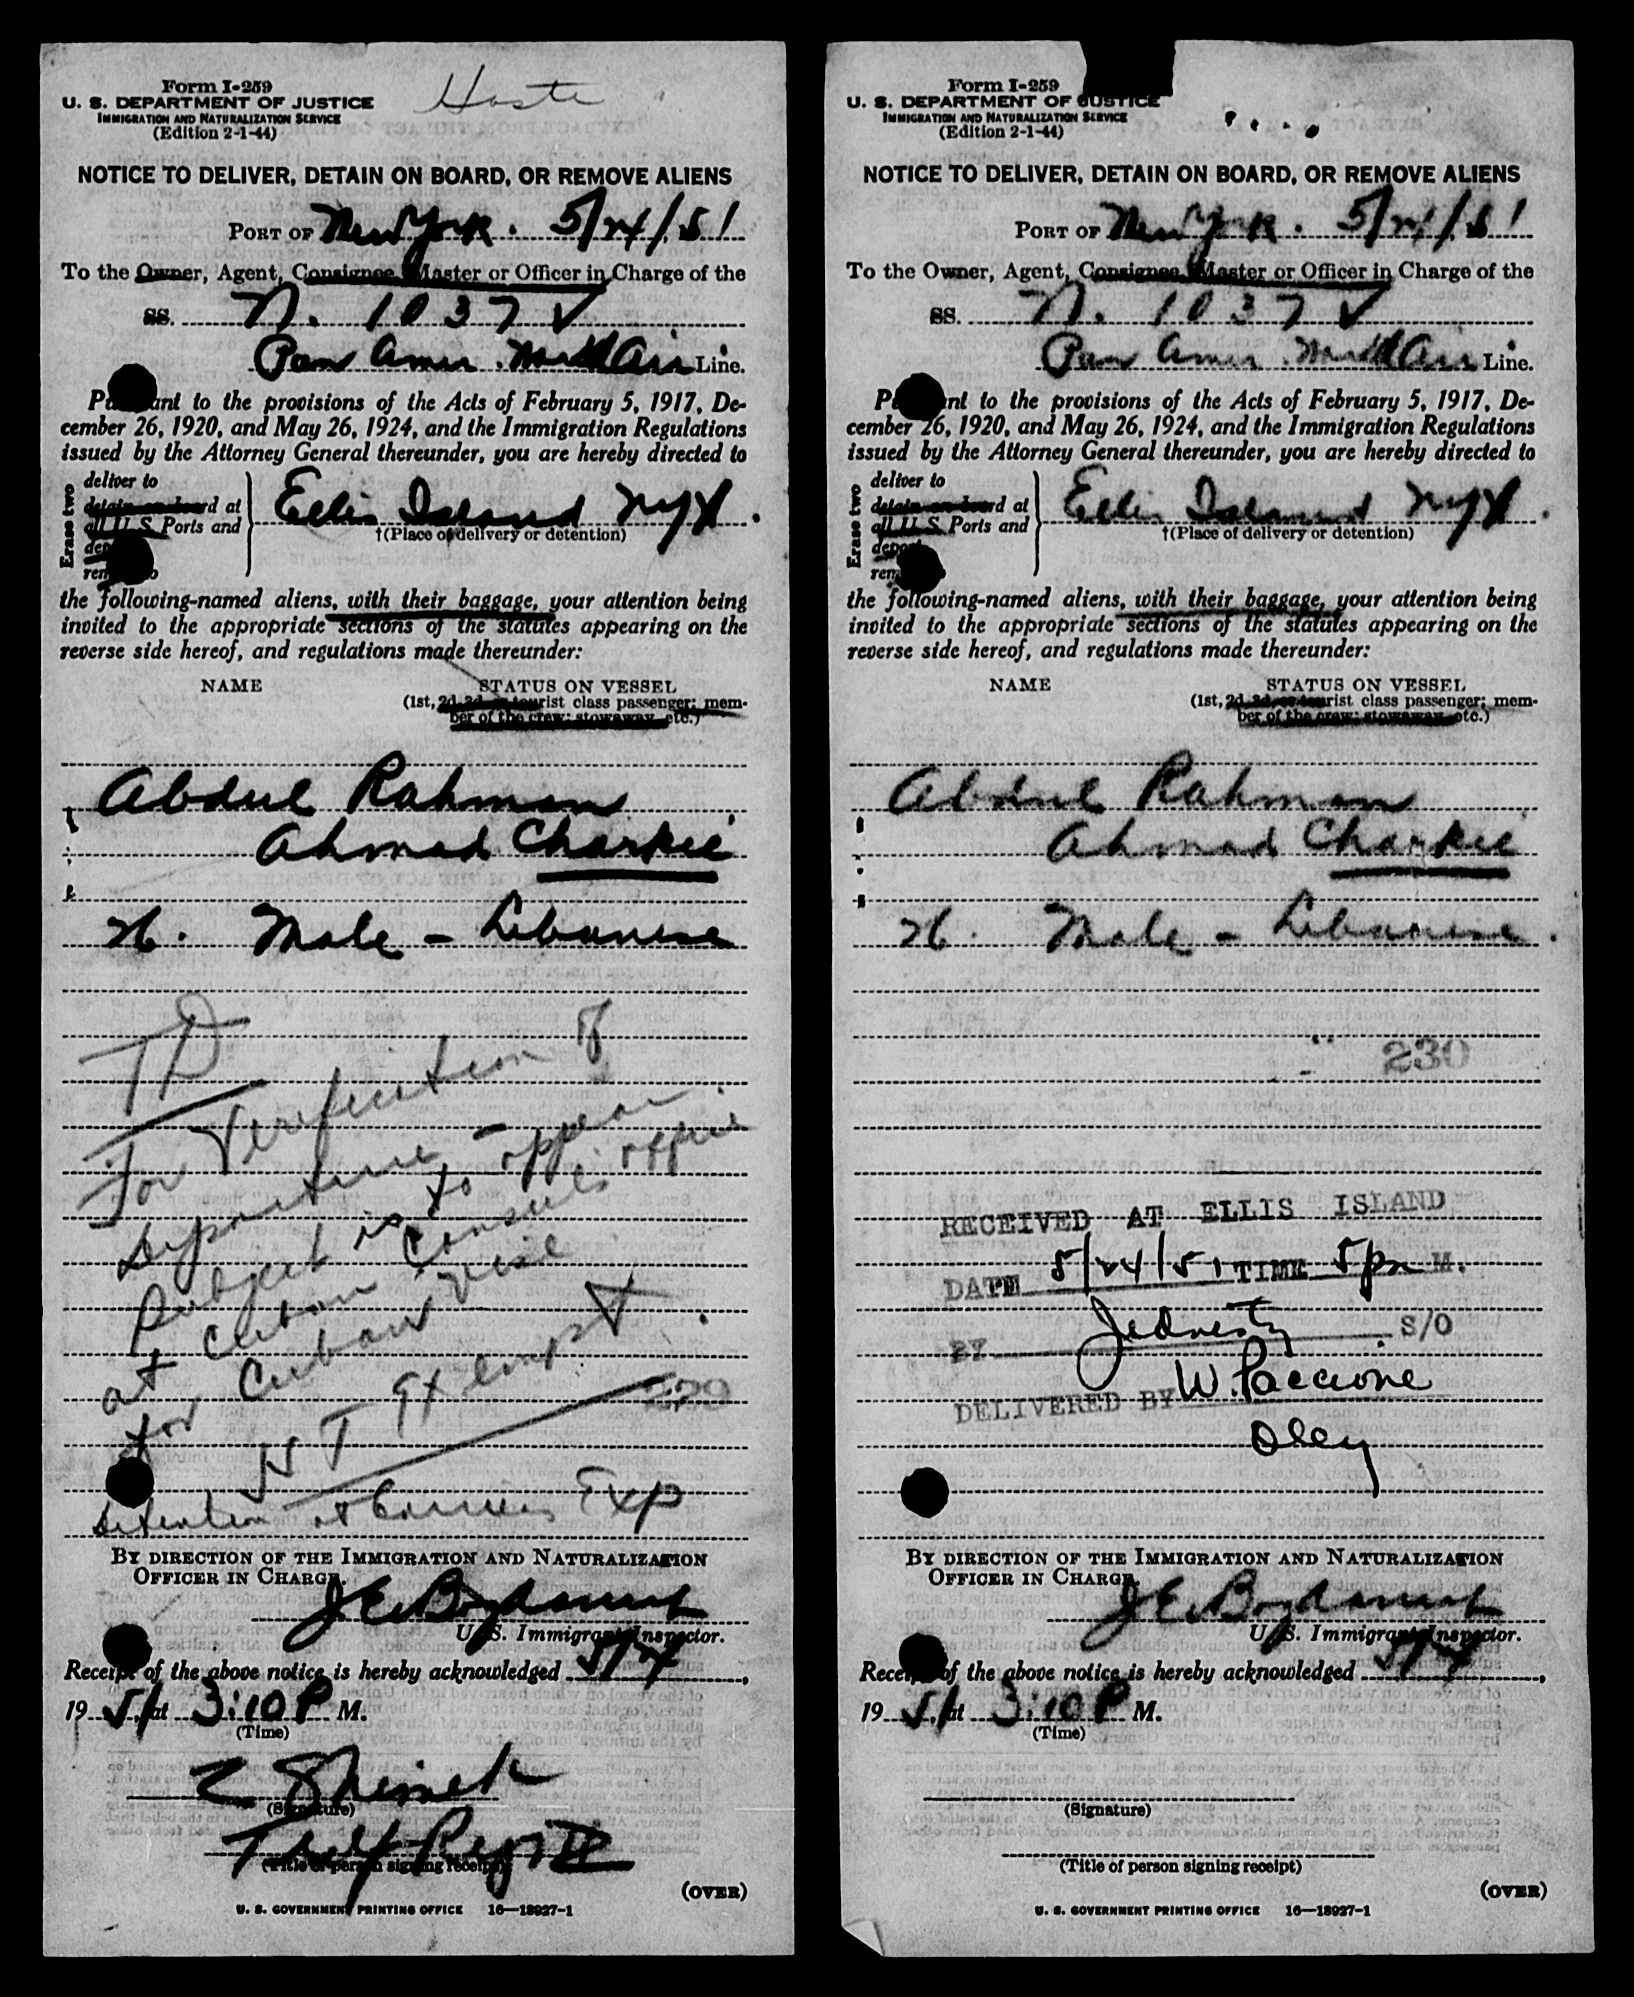 Form I-259
U. S. DEPARTMENT OF JUSTICE
IMMIGRATION AND NATURALIZATION SERVICE
(Edition 2-1-44)
NOTICE TO DELIVER, DETAIN ON BOARD, OR REMOVE ALIENS
PORT OF New York. 5/24/51
To the Owner, Agent, Consignee, Master or Officer in Charge of the
SS. N. 1037 V
Pan Amer. World Air Line.
Pursuant to the provisions of the Acts of February 5, 1917, De-
cember 26, 1920, and May 26, 1924, and the Immigration Regulations
issued by the Attorney General thereunder, you are hereby directed to
Erase two
deliver to
detain on board at
all U. S. Ports and
Ellis Island NYH.
†(Place of delivery or detention)
the following-named aliens, with their baggage, your attention being
invited to the appropriate sections of the statutes appearing on the
reverse side hereof, and regulations made thereunder:
NAME STATUS ON VESSEL
(1st, 2d, 3d, or tourist class passenger; mem-
ber of the crew; stowaway, etc.)
Abdul Rahman
Ahmad Charkie
26. Male - Lebanese
TD
For Verification of
departure - appear.
Subject is to
at Cuban Consuls office
for Cuban vise
NT Exempt
229
Detention at Carriers Exp
BY DIRECTION OF THE IMMIGRATION AND NATURALIZATION
OFFICER IN CHARGE.
U. S. Immigrant Inspector.
Receipt of the above notice is hereby acknowledged 5/24,
1951, at 3:10 P M.
(Time)
(Signature)
(Title of person signing receipt)
(OVER)
U. S. GOVERNMENT PRINTING OFFICE 16—18927-1
Form I-259
U. S. DEPARTMENT OF JUSTICE
IMMIGRATION AND NATURALIZATION SERVICE
(Edition 2-1-44)
NOTICE TO DELIVER, DETAIN ON BOARD, OR REMOVE ALIENS
PORT OF New York. 5/24/51
To the Owner, Agent, Consignee, Master or Officer in Charge of the
SS. N. 1037 V
Pan Amer. World Air Line.
Pursuant to the provisions of the Acts of February 5, 1917, De-
cember 26, 1920, and May 26, 1924, and the Immigration Regulations
issued by the Attorney General thereunder, you are hereby directed to
Erase two
deliver to
detain on board at
all U. S. Ports and
Ellis Island NYH.
†(Place of delivery or detention)
the following-named aliens, with their baggage, your attention being
invited to the appropriate sections of the statutes appearing on the
reverse side hereof, and regulations made thereunder:
NAME STATUS ON VESSEL
(1st, 2d, 3d, or tourist class passenger; mem-
ber of the crew; stowaway, etc.)
Abdul Rahman
Ahmad Charkie
26. Male - Lebanese.
230
RECEIVED AT ELLIS ISLAND
DATE 5/24/51 TIME 5 pm M.
BY S/O
DELIVERED BY W. Paccione
BY DIRECTION OF THE IMMIGRATION AND NATURALIZATION
OFFICER IN CHARGE.
U. S. Immigrant Inspector.
Receipt of the above notice is hereby acknowledged 5/24,
1951, at 3:10 P M.
(Time)
(Signature)
(Title of person signing receipt)
(OVER)
U. S. GOVERNMENT PRINTING OFFICE 16—18927-1